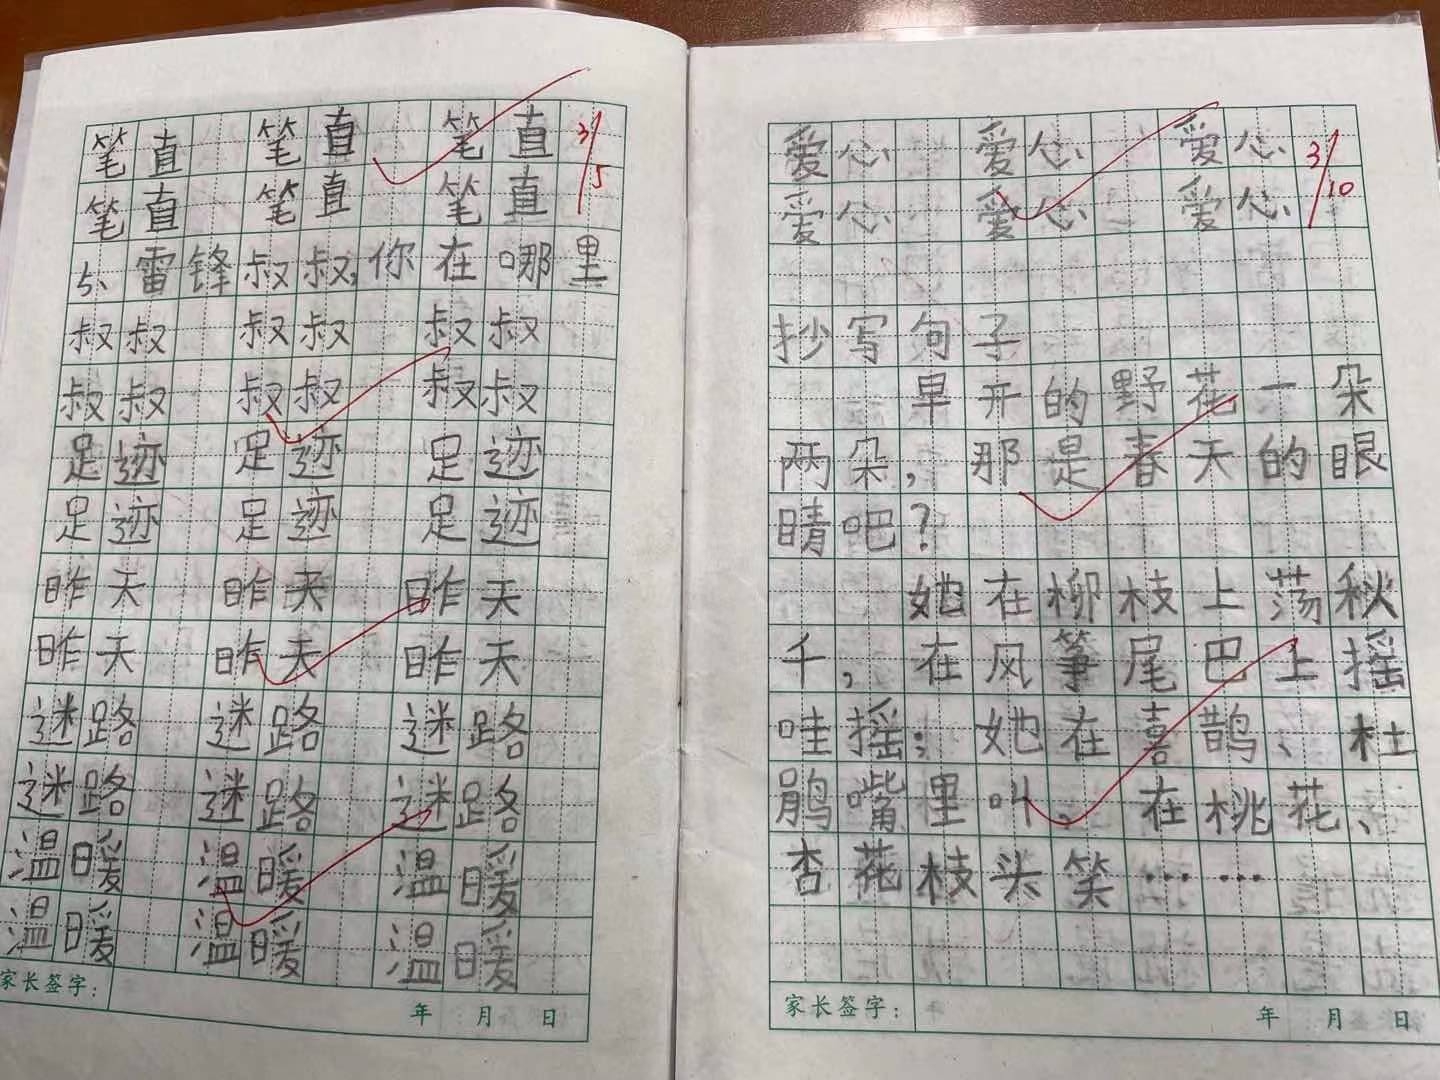 笔直 笔直 笔直 3/5
笔直 笔直 笔直
5、雷锋叔叔,你在哪里
叔叔 叔叔 叔叔
叔叔 叔叔 叔叔
足迹 足迹 足迹
足迹 足迹 足迹
昨天 昨天 昨天
昨天 昨天 昨天
迷路 迷路 迷路
迷路 迷路 迷路
温暖 温暖 温暖
温暖 温暖 温暖
家长签字: 年 月 日
爱心 爱心 爱心 3/10
爱心 爱心 爱心
抄写句子
早开的野花一朵
两朵,那是春天的眼
睛吧?
她在柳枝上荡秋
千,在风筝尾巴上摇
哇摇;她在喜鹊、杜
鹃嘴里叫,在桃花、
杏花枝头笑……
家长签字: 年 月 日